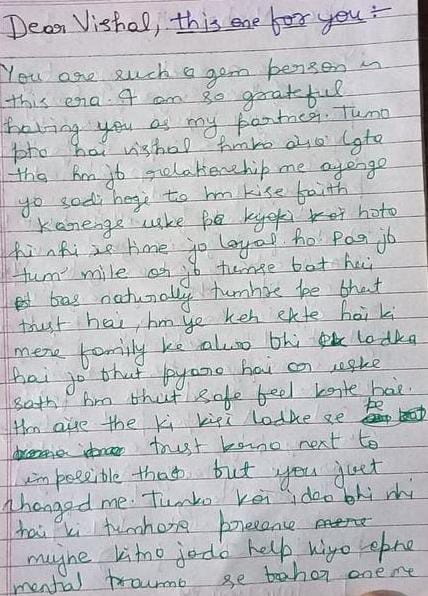 Dear Vishal, this one for you :-
You are such a gem person in
this era. I am so grateful
having you as my partner. Tumo
pto hai vishal hmko aisa lgta
tha hm jb relationship me ayenge
ya sadi hogi to hm kise faith
karenge uske pe kyoki koi hota
hi nhi is time jo loyal ho. Par jb
tum mile or jb tumse bat hui
bas naturally tumhre pe bhut
trust hai, hm ye keh skte hai ki
mere family ke alwa bhi ladka
hai jo bhut pyara hai or uske
sath hm bhut safe feel krte hai.
Hm aise the ki kisi ladke pe
trust krna next to
impossible tha but you just
changed me. Tumko koi idea bhi nhi
hai ki tumhara presence
mujhe kitna jada help kiya apne
mental trauma se bahar ane me